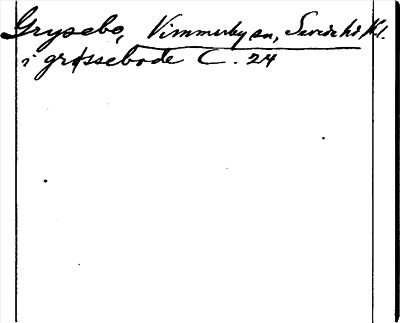 Grysebo, Vimmerby sn, Sevede hd Kl.
i grissebode C. 24